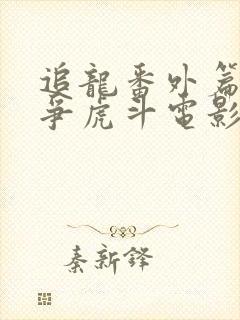 追龍番外篇
爭虎斗電影
秦新鋒